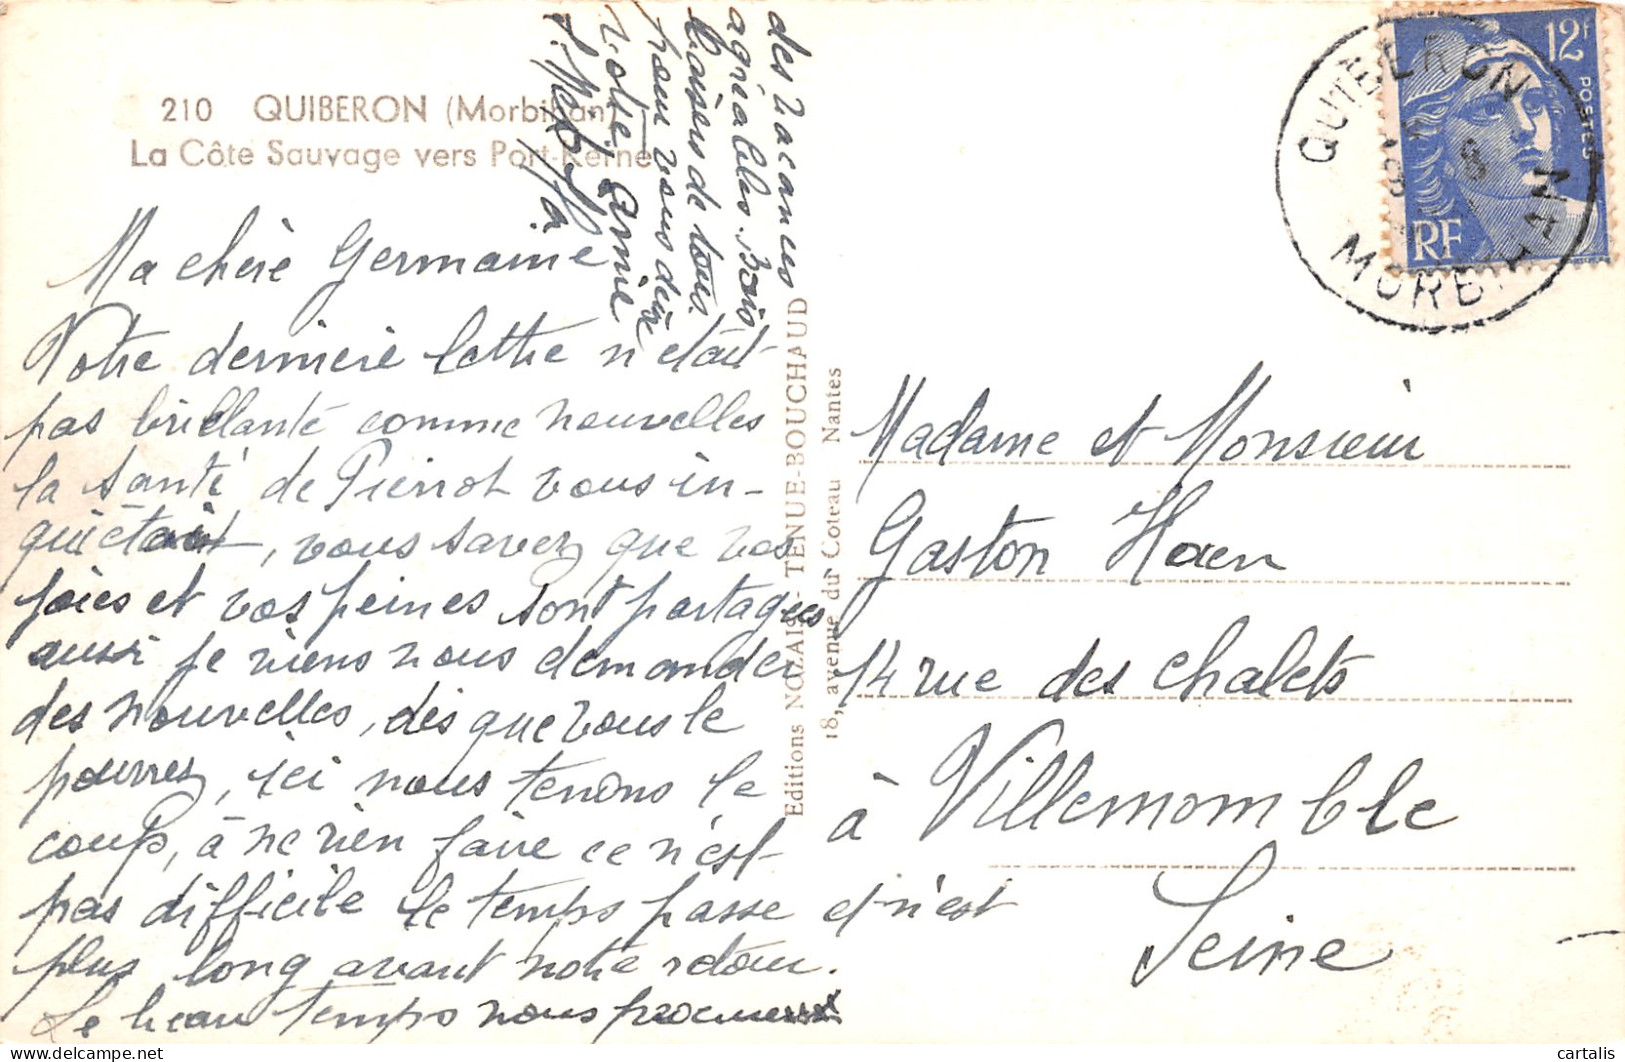 210 QUIBERON (Morbihan)
La Côte Sauvage vers Port-Kerne
Ma chère Germaine
Votre dernière lettre n'était
pas brillante comme nouvelles
la santé de Pierrot vous in-
quiétait, vous savez que vos
joies et vos peines sont partagées
aussi je viens vous demander
des nouvelles, dès que vous le
pourrez, ici nous tenons le
coup, à ne rien faire ce n'est
pas difficile le temps passe et n'est
plus long avant notre retour.
Le beau temps nous procure
des vacances
agréables. Bons
baisers de tous.
pour vous deux
votre amie
Editions NOZAIS-TENUE-BOUCHAUD
18, avenue du Coteau Nantes
12F
POSTES
RF
QUIBERON
MORBIHAN
Madame et Monsieur
Gaston Haen
14 rue des Chalets
à Villemomble
Seine
cartalis